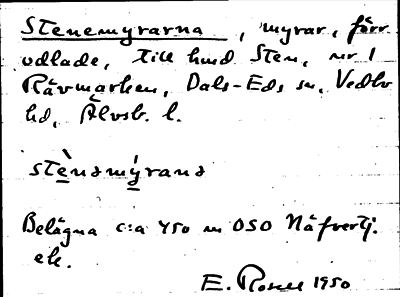 Stenemyrarna, myrar, förr
odlade, till hmd Sten, nr 1
Rävmarken, Dals-Eds sn, Vedbo
hd, Älvsb. l.
stènəmýranə
Belägna c:a 450 m OSO Näfvertj.
ek.
E. Rosell 1950